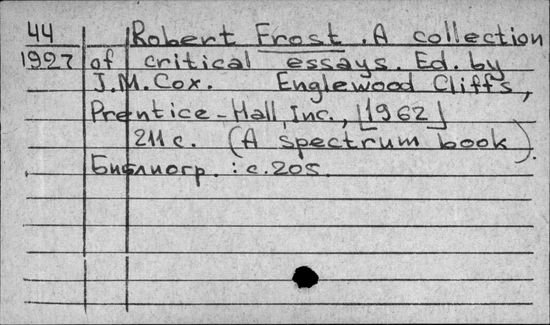 44 Robert Frost. A collection
1927 of critical essays. Ed. by
J.M. Cox. Englewood Cliffs,
Prentice-Hall, Inc., [1962]
211 с. (A spectrum book).
Библиогр.: с. 205